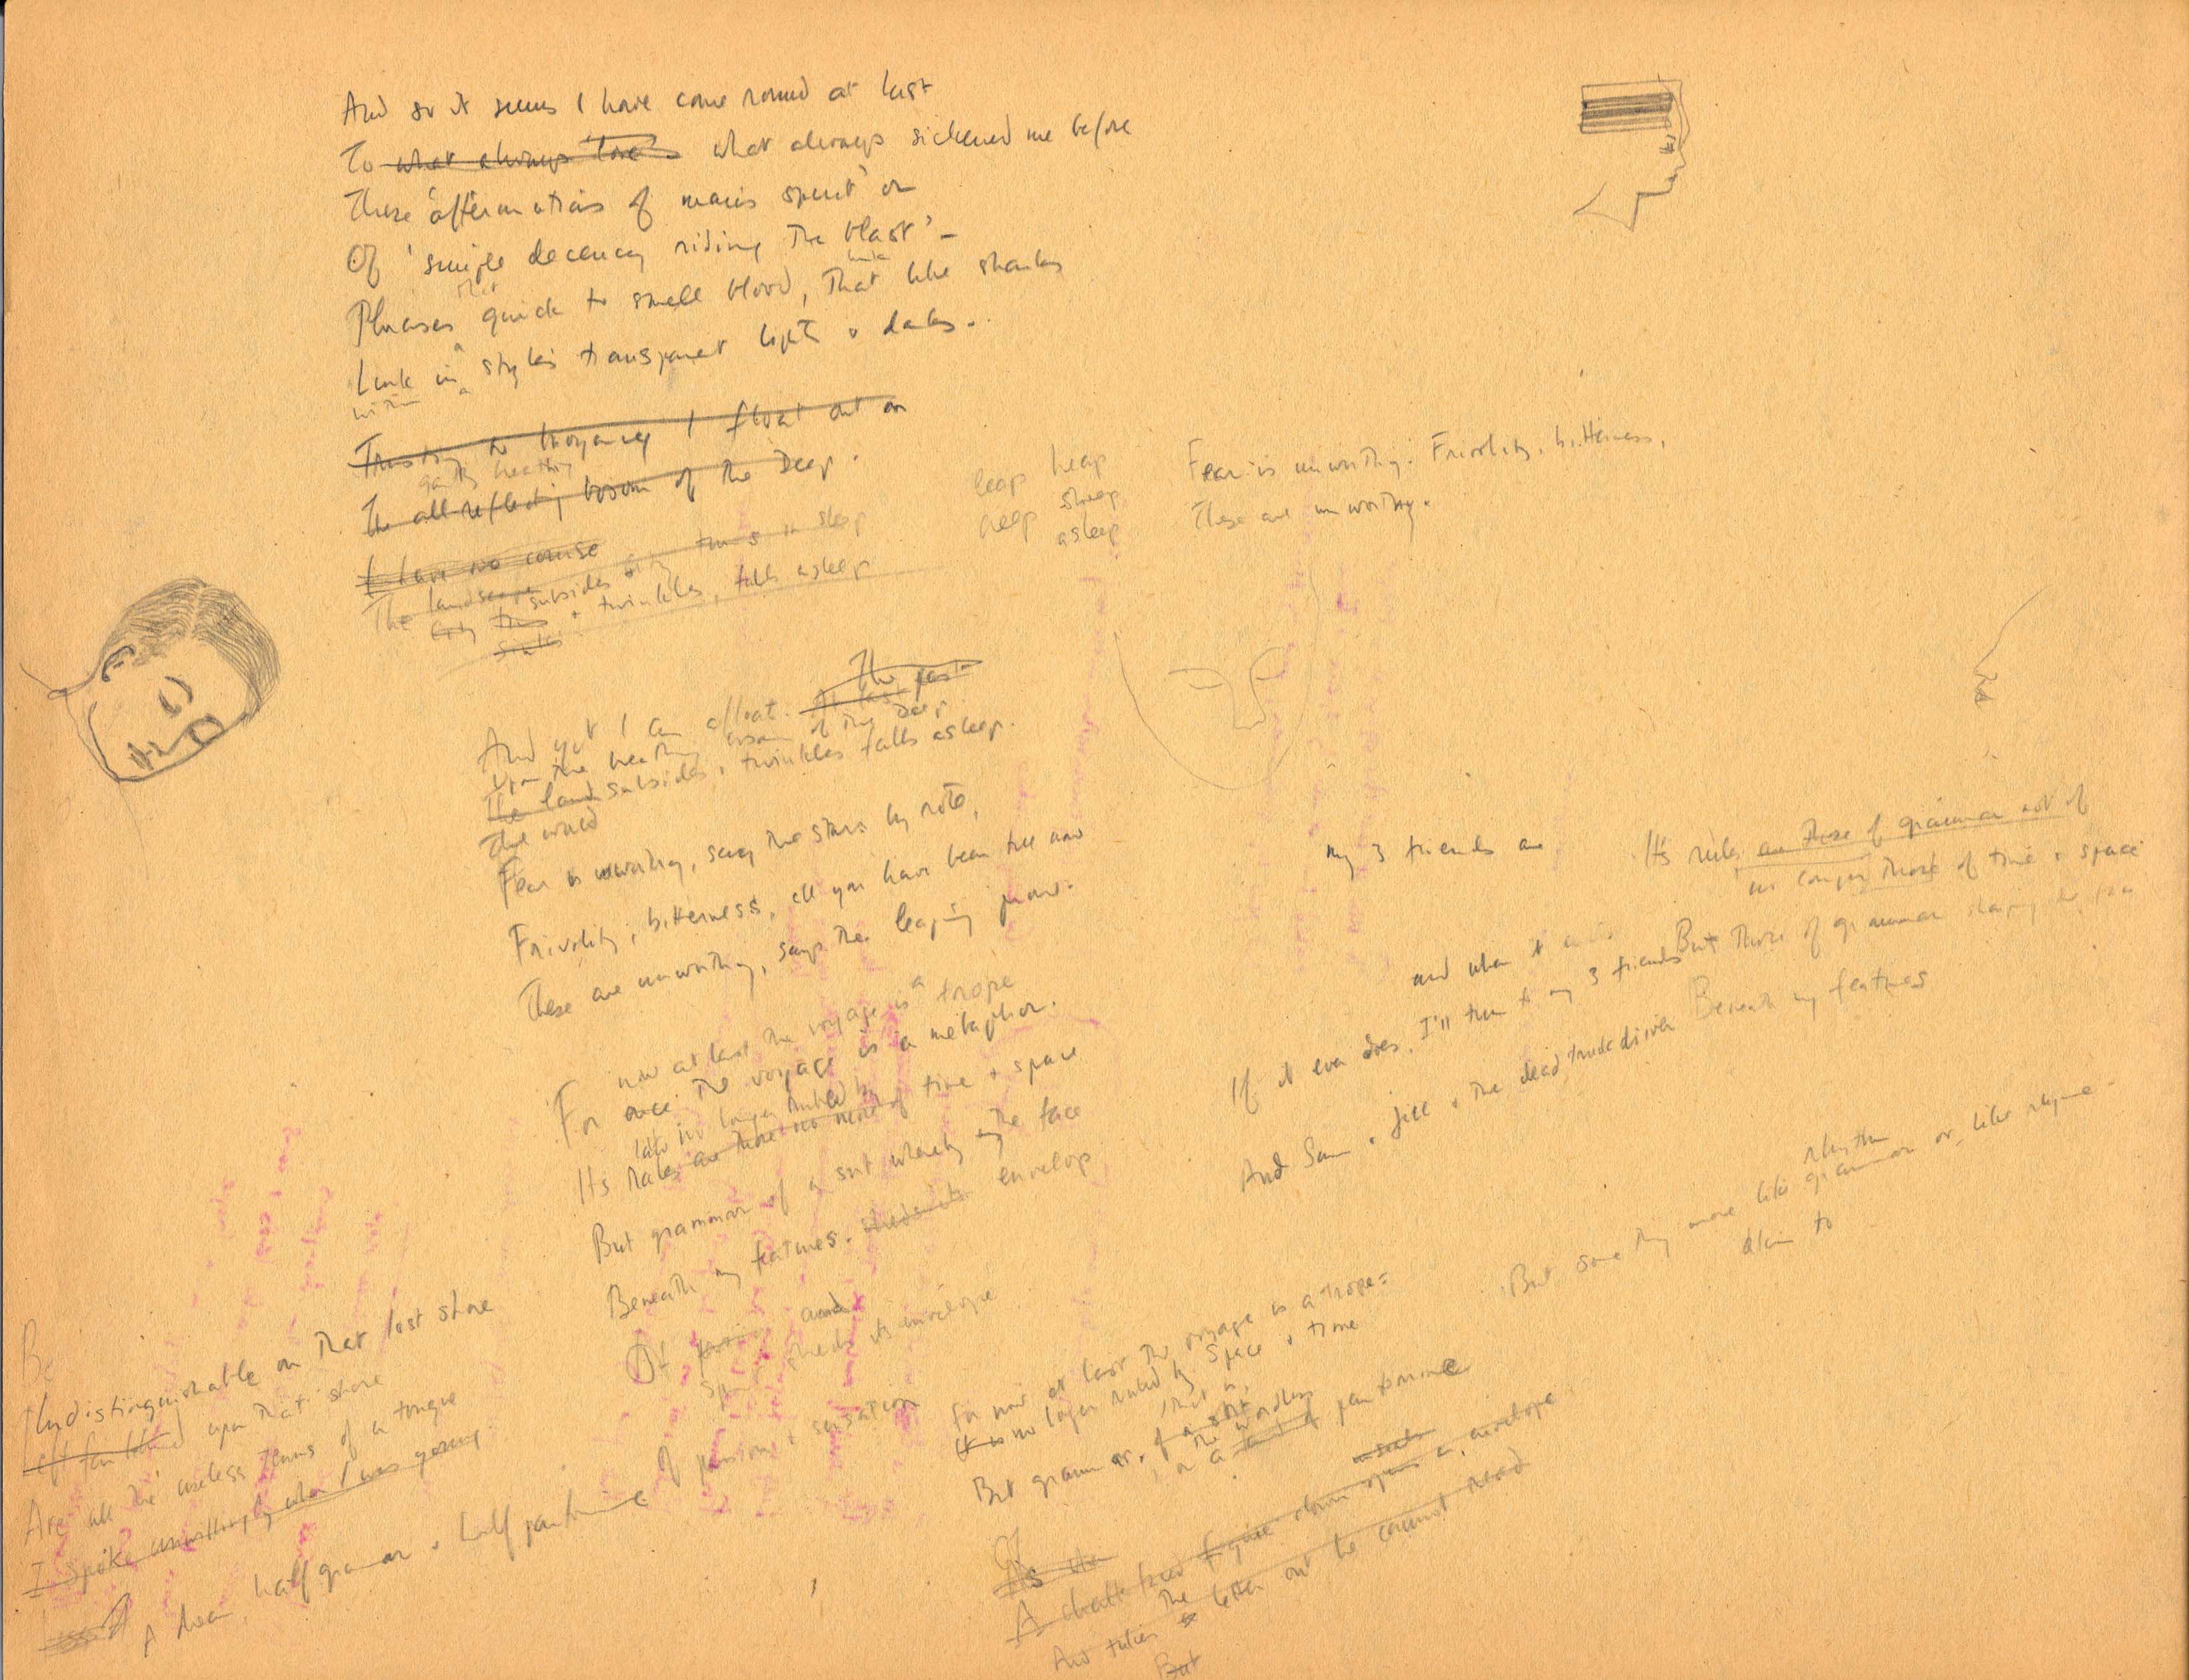 And so it seems I have come round at last
To what always what always sickened me before
These 'affirmations of man's spirit' or
Of 'simple decency riding the blast' –
that
Phrases quick to smell blood, that like sharks
Link in a style's transparent lights & darks.
within
Trusting to buoyancy I float out on
heathy
The all-reflecting bosom of the Deep.
I have no course
The landscape subsides & twinkles, falls asleep
sinks
leap heap
deep sheep
asleep
Fear is unworthy. Frivolity, bitterness,
These are unworthy.
The past
And yet I am afloat. At last
Upon the bosom of the Deep
The land subsides, twinkles falls asleep.
The world
Fear is unworthy, say the stars by rote,
Frivolity, bitterness, all you have been till now
These are unworthy, says the leaping prow.
now at last the voyage is a trope
For once the voyage is a metaphor.
no longer ruled by
Its rules are those no more of time & space
But grammar of a sort whereby the face
Beneath my features. sheds its envelop
and
sheds its envelope
Of passion & sensation
My 3 friends are
Its rules are those of grammar not of
no longer those of time & space
But those of grammar shaping the face
Beneath my features
and when it
If it ever does, I'll turn to my 3 friends
And Sam & Jill & the dead truck driver
rhythm
But something more like grammar or, like rhyme
akin to
Be
Indistinguishable on that last shore
Left far behind upon that shore
Are all the useless terms of a tongue
I spoke unwittingly when I was young.
A dream, half grammar & half pantomime
For now at last the voyage is a trope:
It is no longer ruled by space & time
that is,
But grammar, of a sort
the wordless
or a pantomime
Of
As the
A chalk faced figure clown opens an envelope
And takes the letter out he cannot read
But